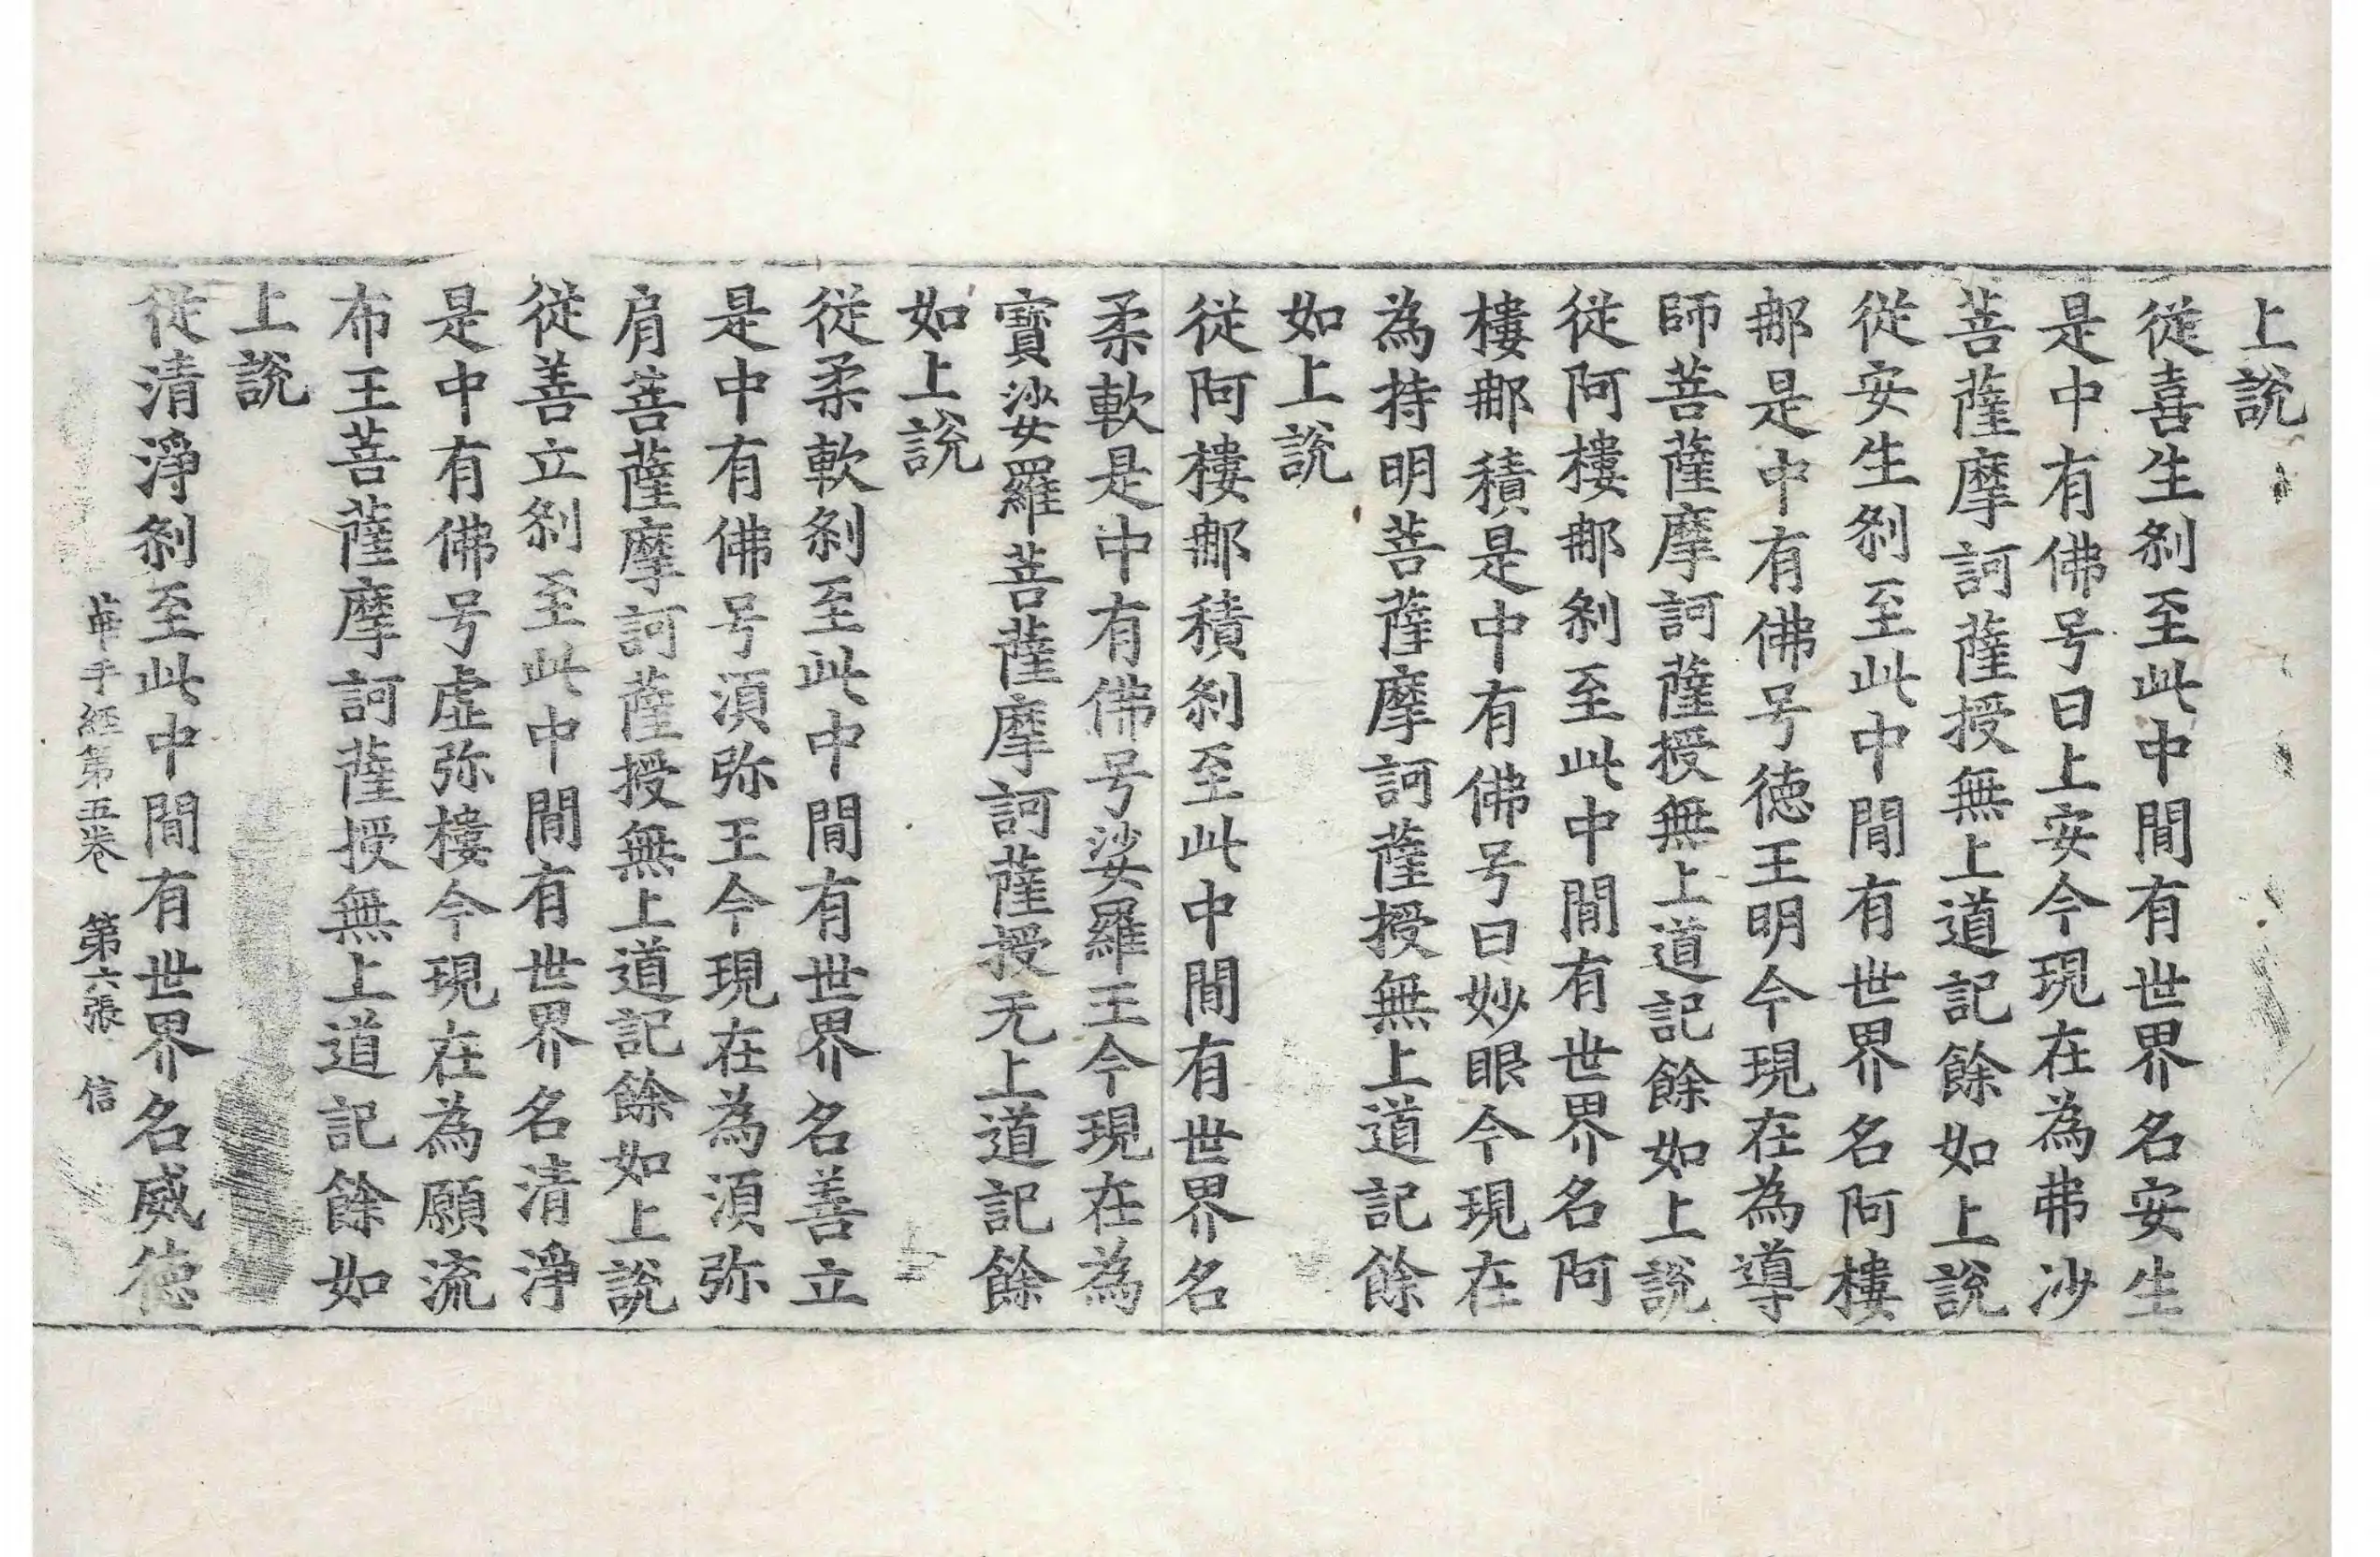 上說
從喜生刹至此中間有世界名安生
是中有佛号曰上安今現在為弗沙
菩薩摩訶薩授無上道記餘如上說
從安生刹至此中間有世界名阿樓
那是中有佛号德王明今現在為導
師菩薩摩訶薩授無上道記餘如上說
從阿樓那刹至此中間有世界名阿
樓那積是中有佛号曰妙眼今現在
為持明菩薩摩訶薩授無上道記餘
如上說
從阿樓那積刹至此中間有世界名
柔軟是中有佛号娑羅王今現在為
寶娑羅菩薩摩訶薩授无上道記餘
如上說
從柔軟刹至此中間有世界名善立
是中有佛号須弥王今現在為須弥
肩菩薩摩訶薩授無上道記餘如上說
從善立刹至此中間有世界名清淨
是中有佛号虛弥樓今現在為願流
布王菩薩摩訶薩授無上道記餘如
上說
從清淨刹至此中間有世界名威德
華手經第五卷 第六張 信